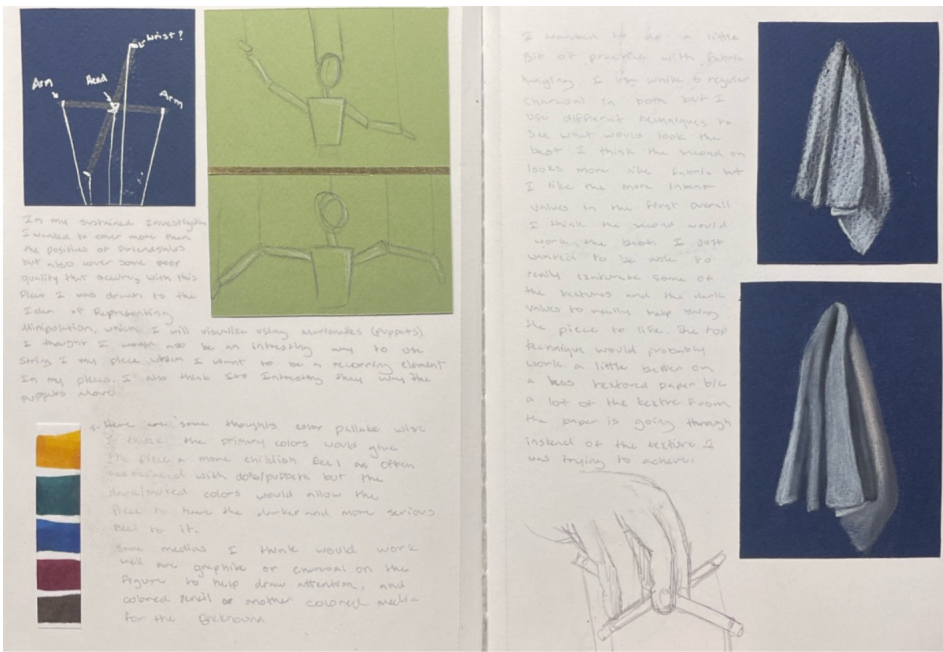 Wrist?
Arm
Head
Arm
In my sustained Investigation
I wanted to cover more than
the positives of friendships
but also cover some poor
quality that occuring with this
Piece I was drawn to the
Idea of Representing
Minipolution, which I will visualize using marionetes (puppets)
I thought I would also be an intersting way to use
String I my piece which I want to be a reccoring element
In my pieces. I also think Its Intersting they way the
puppets move.
Here are some thoughts color pallake wise
I think the primary colors would give
the piece a more childish feel as often
associated with dolls/puppets but the
dark/muted colors would allow the
piece to have the darker and more serious
feel to it.
Some medias I think would work
well are graphite or charcoal on the
figure to help draw attention, and
colored pencil or another colored media
for the background
I wanted to do a little
bit of practice with fabric
hanging. I use white & regular
charcoal in both but I
use different techniques to
see what would look the
best I think the second on
looks more like fabric but
I like the more intense
values in the first overall
I think the second would
work the best I just
wanted to be able to
really some of
the textures and the dark
values to really help bring
the piece to life. The top
technique would probably
work a little better on
a less textured paper b/c
a lot of the texture from
the paper is going through
instead of the texture I
was trying to achieve.